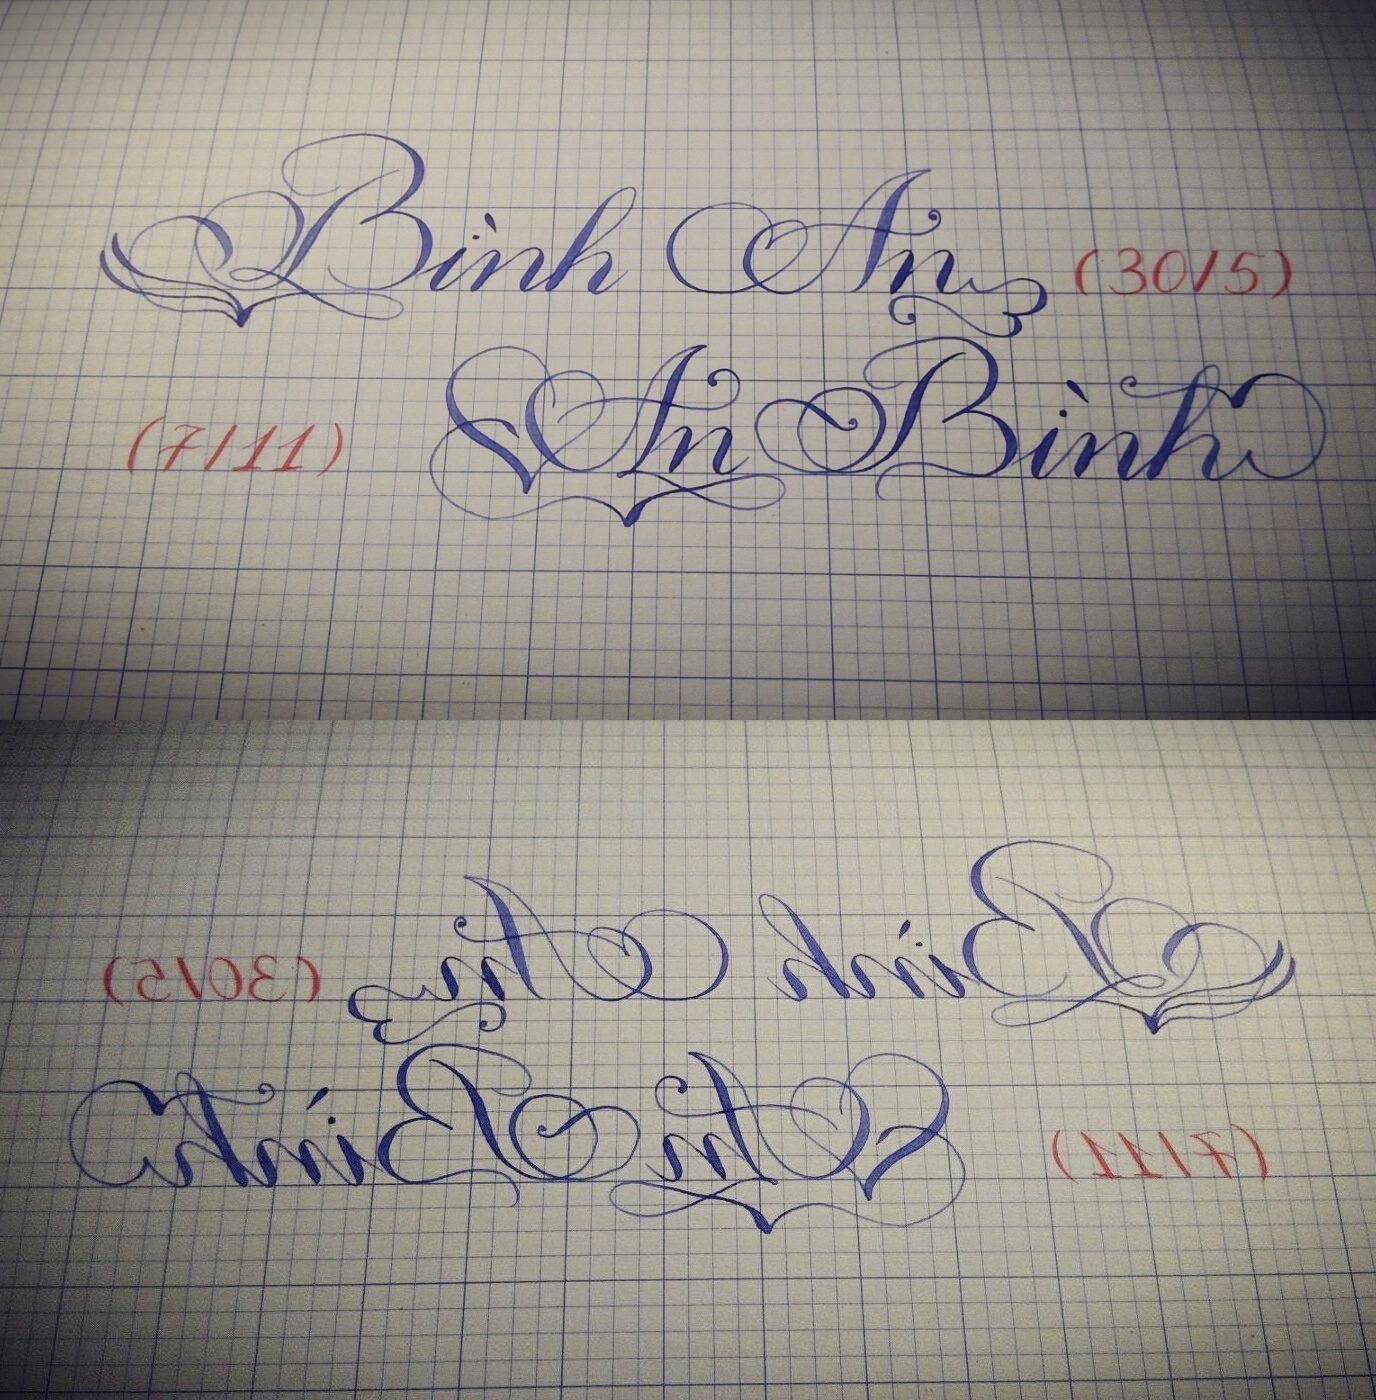 Bình An (30/5)
(7/11) An Bình
Bình An (30/5)
(7/11) An Bình